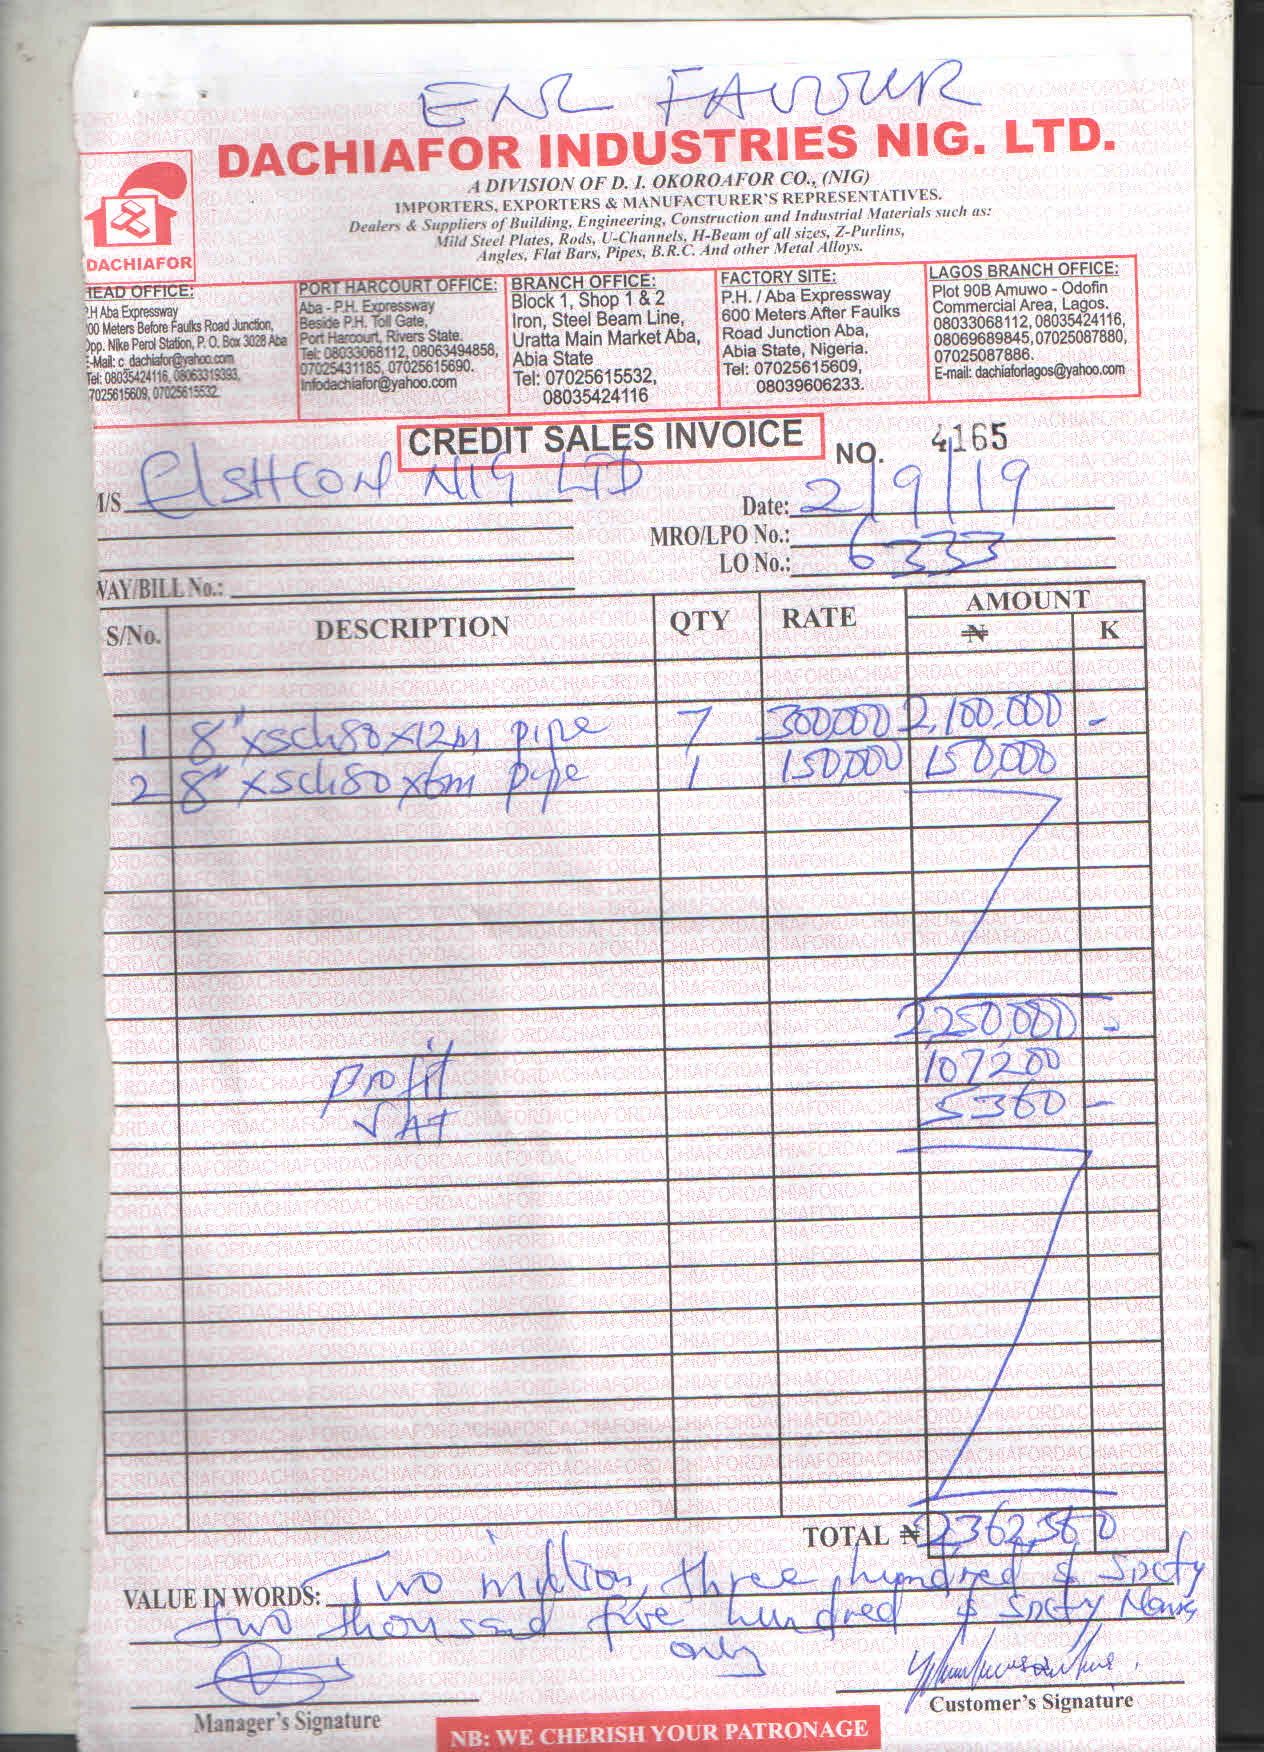 ENR FAVOUR
DACHIAFOR INDUSTRIES NIG. LTD.
A DIVISION OF D. I. OKOROAFOR CO., (NIG)
IMPORTERS, EXPORTERS & MANUFACTURER'S REPRESENTATIVES.
Dealers & Suppliers of Building, Engineering, Construction and Industrial Materials such as:
Mild Steel Plates, Rods, U-Channels, H-Beam of all sizes, Z-Purlins,
Angles, Flat Bars, Pipes, B.R.C. And other Metal Alloys.
DACHIAFOR
HEAD OFFICE:
P.H Aba Expressway
00 Meters Before Faulks Road Junction,
Opp. Nike Perol Station, P. O. Box 3028 Aba
E-Mail: c_dachiafor@yahoo.com
Tel: 08035424116, 08063319393,
7025615609, 07025615532
PORT HARCOURT OFFICE:
Aba - P.H. Expressway
Beside P.H. Toll Gate,
Port Harcourt, Rivers State.
Tel: 08033068112, 08063494858,
07025431185, 07025615690.
Infodachiafor@yahoo.com
BRANCH OFFICE:
Block 1, Shop 1 & 2
Iron, Steel Beam Line,
Uratta Main Market Aba,
Abia State
Tel: 07025615532,
08035424116
FACTORY SITE:
P.H. / Aba Expressway
600 Meters After Faulks
Road Junction Aba,
Abia State, Nigeria.
Tel: 07025615609,
08039606233.
LAGOS BRANCH OFFICE:
Plot 90B Amuwo - Odofin
Commercial Area, Lagos.
08033068112, 08035424116,
08069689845, 07025087880,
07025087886.
E-mail: dachiaforlagos@yahoo.com
CREDIT SALES INVOICE NO. 4165
M/S ElSHCON NIG LTD
Date: 2/9/19
MRO/LPO No.:
LO No.: 6333
WAY/BILL No.:
S/No. DESCRIPTION QTY RATE AMOUNT
₦ K
1 8"xsch80x12m pipe 7 300,000 2,100,000 -
2 8"xsch80x6m pipe 1 150,000 150,000
2,250,000 -
Profit 107200
VAT 5360 -
TOTAL ₦ 2,362,560
VALUE IN WORDS: Two million, three hundred & Sixty
two thousand five hundred & sixty Naira
only
Manager's Signature
Customer's Signature
NB: WE CHERISH YOUR PATRONAGE